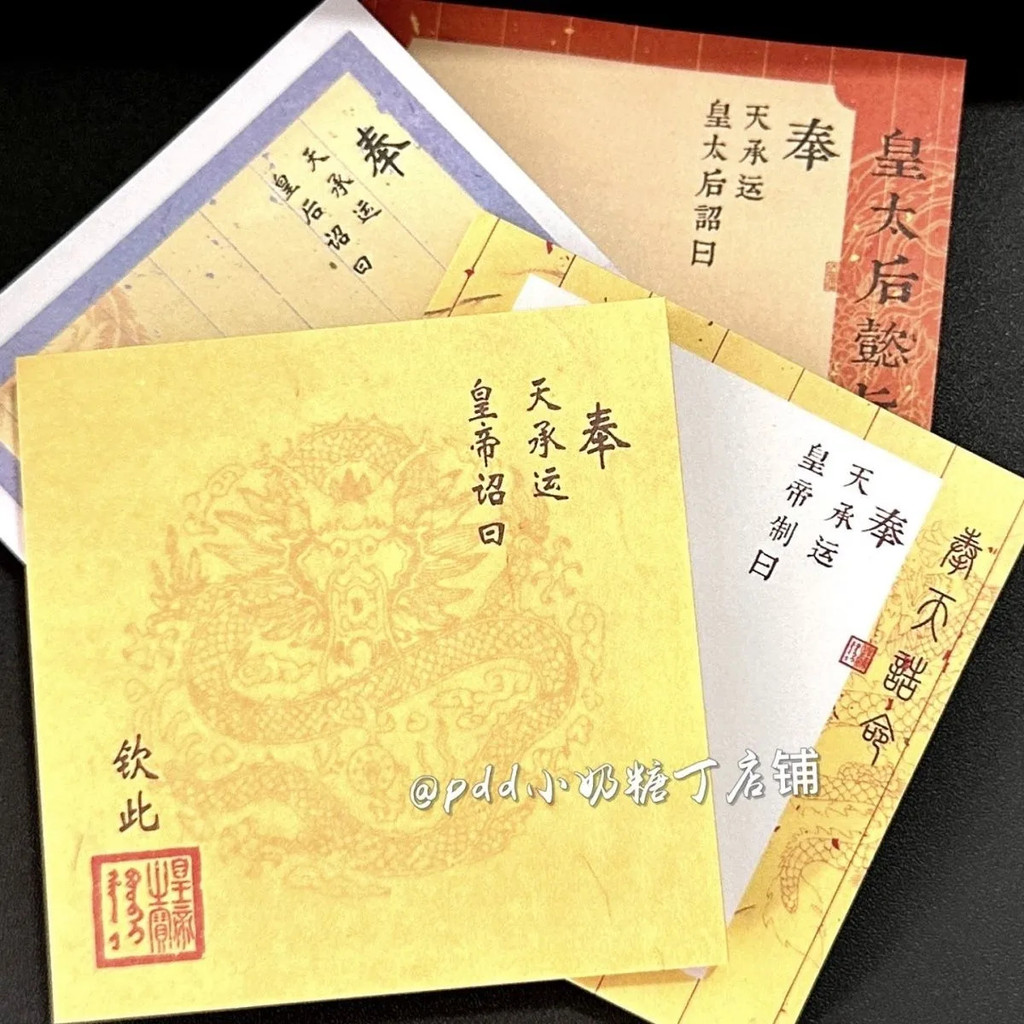 奉
天承运
皇后诏曰
皇太后懿
奉
天承运
皇太后詔曰
奉天誥命
奉
天承运
皇帝制曰
奉
天承运
皇帝诏曰
钦此
皇帝之寶
@pdd小奶糖丁店铺